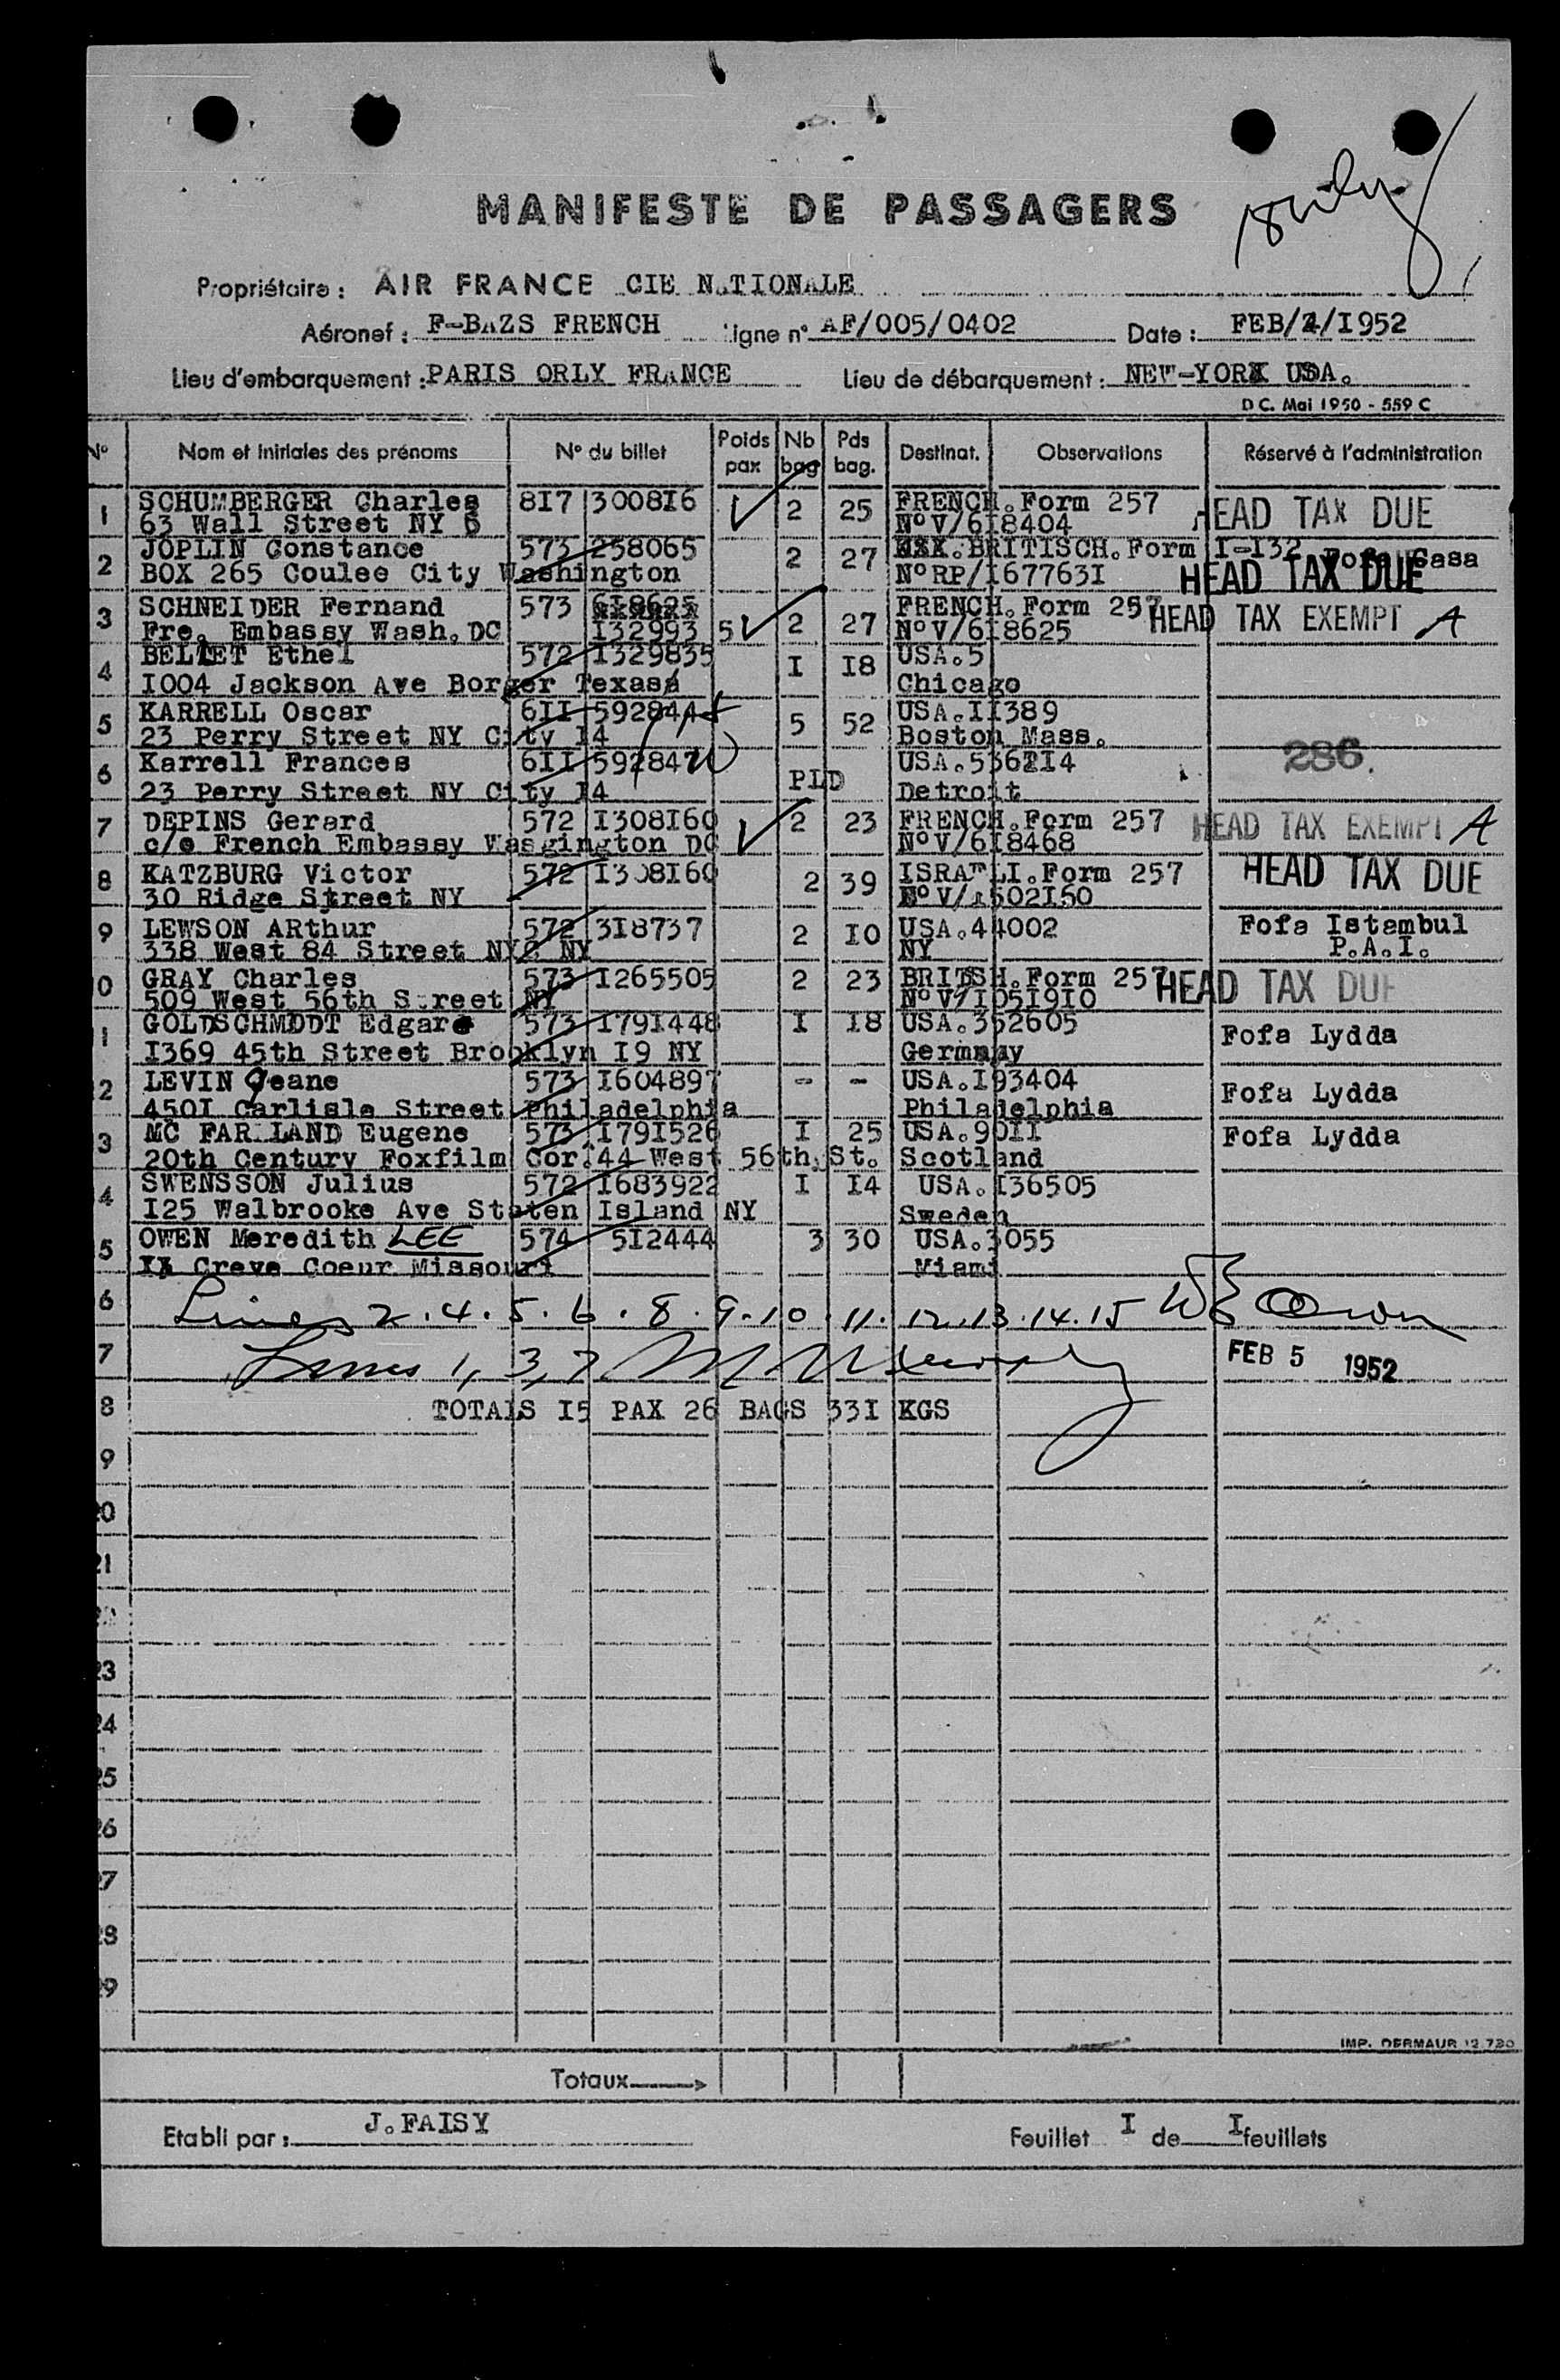 MANIFESTE DE PASSAGERS
Propriétaire : AIR FRANCE CIE NATIONALE
Aéronef : F-BAZS FRENCH ligne n° AF/005/0402 Date : FEB/4/I952
Lieu d'embarquement : PARIS ORLY FRANCE Lieu de débarquement : NEW-YORK USA.
D C. Mai 1950 - 559 C
N° Nom et initiales des prénoms N° du billet Poids pax Nb bag Pds bag. Destinat. Observations Réservé à l'administration
1 SCHUMBERGER Charles 8I7 3008I6 2 25 FRENCH.Form 257 HEAD TAX DUE
63 Wall Street NY 5 N°V/6I8404
2 JOPLIN Constance 573 258065 2 27 BRITISCH.Form I-I32 Fofa Casa
BOX 265 Coulee City Washington N°RP/I67763I HEAD TAX DUE
3 SCHNEIDER Fernand 573 6I8625 2 27 FRENCH.Form 257 HEAD TAX EXEMPT A
Fre. Embassy Wash.DC I32993 5 N°V/6I8625
4 BELLET Ethel 572 I329835 I I8 USA.5
I004 Jackson Ave Borger Texas Chicago
5 KARRELL Oscar 6II 592844 5 52 USA.II389
23 Perry Street NY City I4 Boston Mass.
6 Karrell Frances 6II 592847 PLD USA.5362I4 286.
23 Perry Street NY City I4 Detroit
7 DEPINS Gerard 572 I308I60 2 23 FRENCH.Form 257 HEAD TAX EXEMPT A
c/o French Embassy Wasgington DC N°V/6I8468
8 KATZBURG Victor 572 I308I60 2 39 ISRAELI.Form 257 HEAD TAX DUE
30 Ridge Street NY N°V/I502I50
9 LEWSON ARthur 572 3I8737 2 I0 USA.44002 Fofa Istambul
338 West 84 Street NYC NY NY P.A.I.
0 GRAY Charles 573 I265505 2 23 BRITSH.Form 257 HEAD TAX DUE
509 West 56th Street NY N°V/I05I9I0
1 GOLDSCHMDDT Edgar 573 I79I448 I I8 USA.352605 Fofa Lydda
I369 45th Street Brooklyn I9 NY Germnay
2 LEVIN Jeane 573 I604897 - - USA.I93404 Fofa Lydda
450I Carlisle Street Philadelphia Philadelphia
3 MC FARLLAND Eugene 573 I79I526 I 25 USA.90II Fofa Lydda
20th Century Foxfilm Cor.44 West 56th.St. Scotland
4 SWENSSON Julius 572 I683922 I I4 USA.I36505
I25 Walbrooke Ave Staten Island NY Sweden
5 OWEN Meredith LEE 574 5I2444 3 30 USA.3055
Creve Coeur Missouri Miami
6 Lines 2.4.5.6.8.9.10.11.12.13.14.15 WE Owen
7 Lines 1, 3, 7 FEB 5 1952
8 TOTALS I5 PAX 26 BAGS 33I KGS
9
20
21
23
24
25
26
27
28
29
IMP. DERMAUR
Totaux
Etabli par : J.FAISY Feuillet I de I feuillets